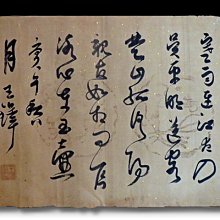 寒雨連江夜入
吳平明送客
楚山孤洛陽
親友如相問一片
冰心在玉壺
庚午秋八
月王鐸